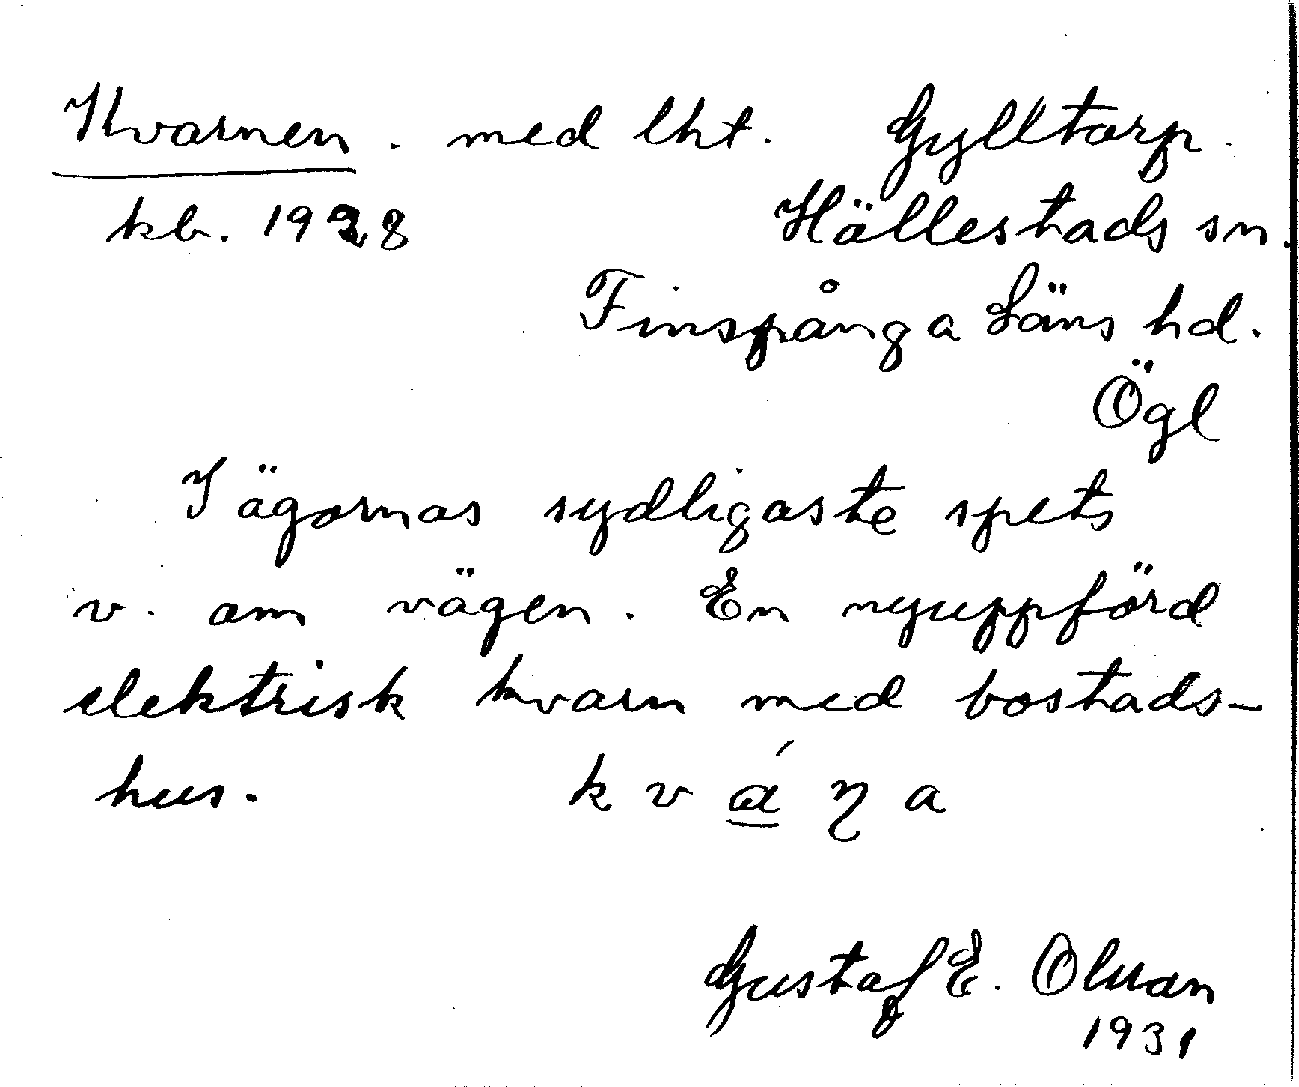 Kvarnen. med lht. Gylltorp.
kb. 1928 Hällestads sn.
Finspånga Läns hd.
Ögl
I ägornas sydligaste spets
v. om vägen. En nyuppförd
elektrisk kvarn med bostads-
hus. kváṇa
Gustaf E. Olsson
1931